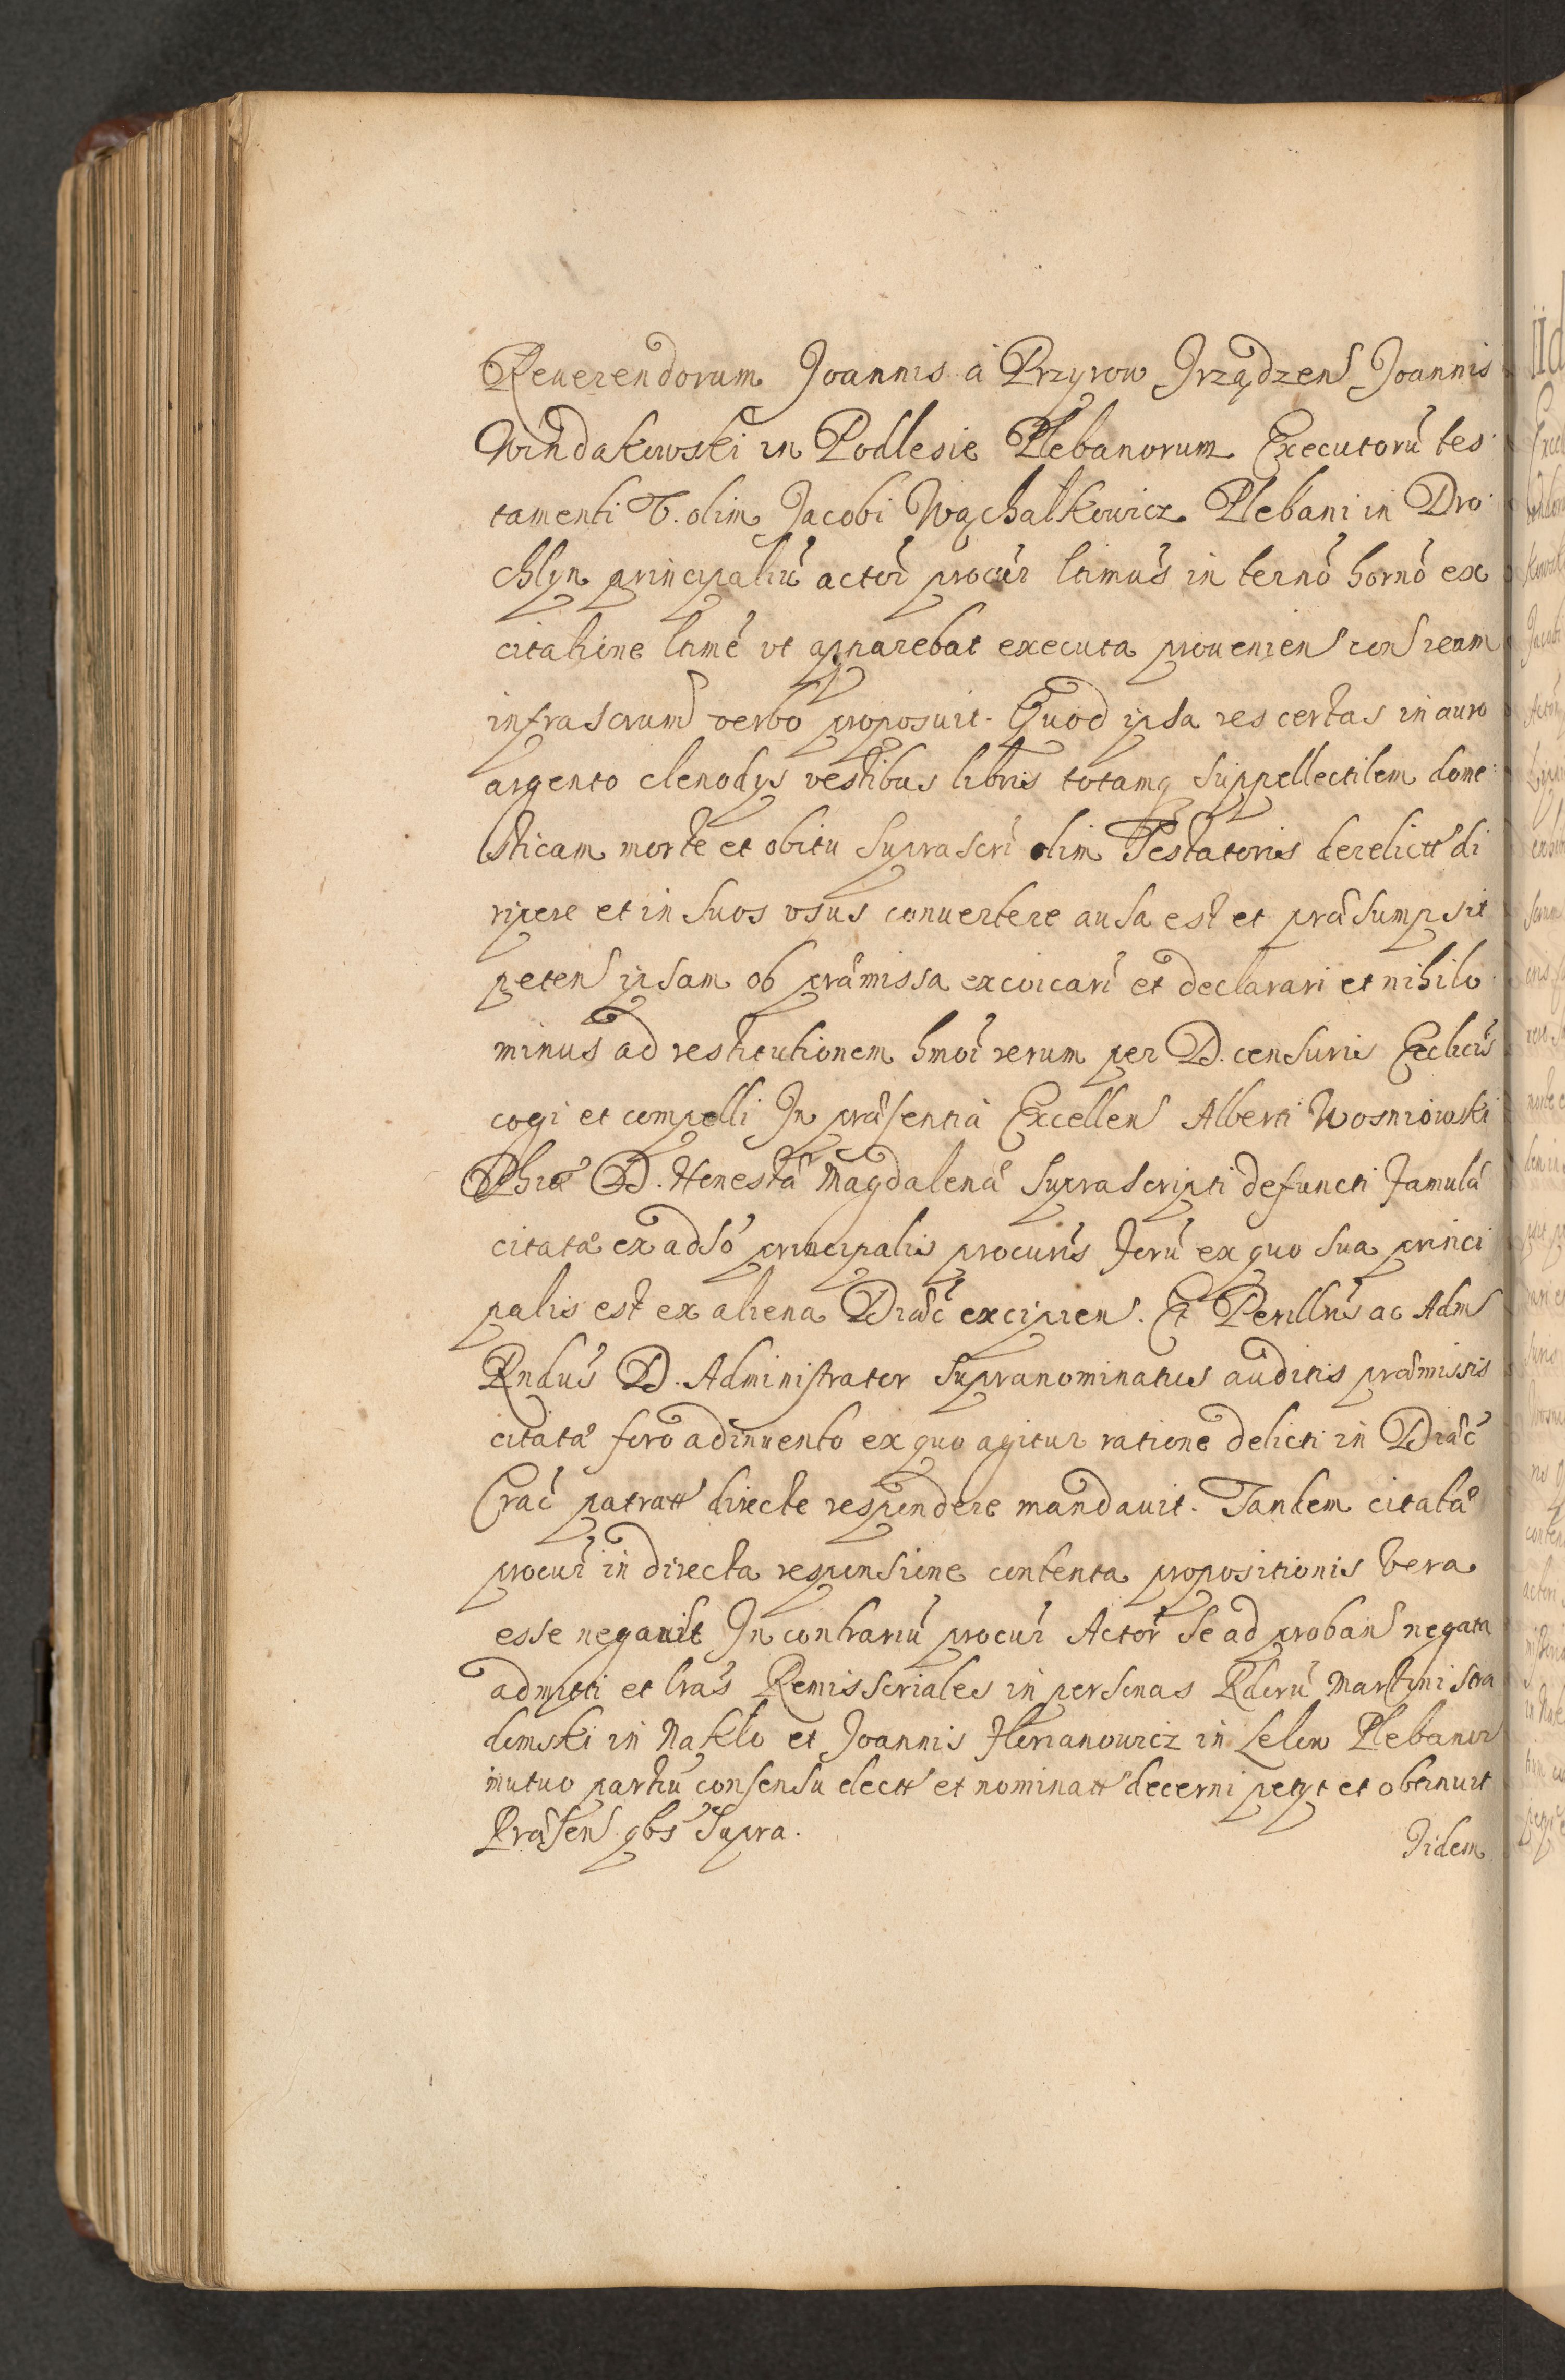 Reuerendorum Joannis à Przyrow Jrządzen Joannis
Windakowski in Podlesie Plebanorum Executorũ tes
tamenti V. olim Jacobi Wąchalkowicz Plebani in Dro
chlyn principaliũ actor procur ltimus in termõ hornõ ex
citatione ltime vt apparebat executa prouenien con ream
infrascram verbo proposuit. Quod ipsa res certas in auro
argento clenodys vestibus libris totamq suppellectilem dome
sticam morte et obitu suprascri olim Testatoris derelictt di
ripere et in suos vsus conuertere ausa est et præsumpsit
peten ipsam ob præmissa excoicari et declarari et nihilo
minus ad restitutionem hmoi rerum per D. censuris Ecclicis
cogi et compelli Jn præsentia Excellen Alberti Wosniowski
Phiæ D. Honestæ Magdalenæ suprascripti defuncti famulæ
citatæ ex adso principalis procuris forũ ex quo sua princi
palis est ex aliena Diæc excipien. Et Perillris ac Adm
Rndus D. Administrator supranominatus auditis præmissis
citatæ foro adinuento ex quo agitur ratione delicti in Diæc
Crac patratt directe respondere mandauit. Tandem citatæ
procur in directa responsione contenta propositionis vera
esse negauit Jn contrariũ procur Actor se ad proban negata
admitti et lras Remissoriales in personas Rdorũ Martini Stra
domski in Naklo et Joannis Florianowicz in Lelow Plebanor
mutuo partiũ consensu electt et nominatt decerni petyt et obtinuit
Præsen qbs supra.
Jidem